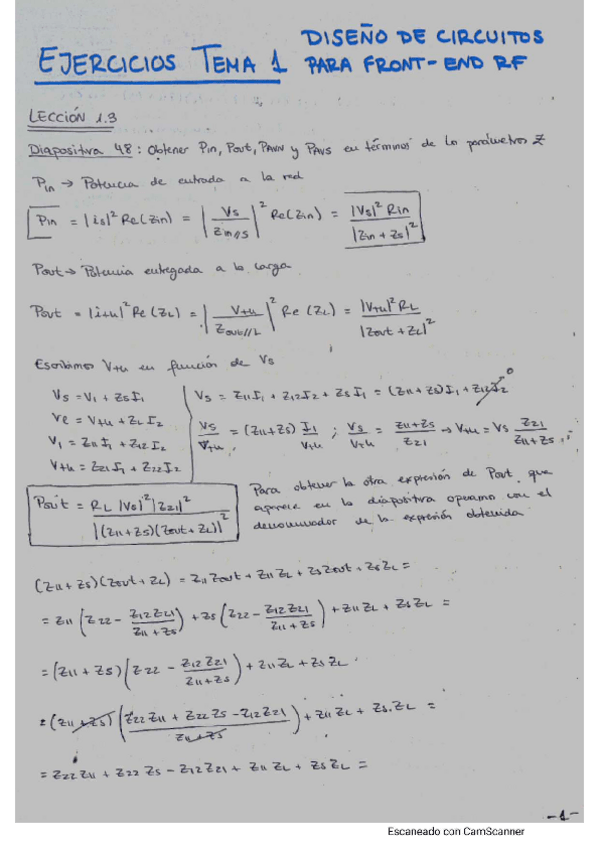 EJERCICIOS TEMA 1 DISEÑO DE CIRCUITOS PARA FRONT-END RF
LECCIÓN 1.3
Diapositiva 48: Obtener Pin, Pout, PAVN y PAVS en términos de los parámetros Z
Pin → Potencia de entrada a la red
Pin = |is|² Re(Zin) = |Vs / Zin//s|² Re(Zin) = |Vs|² Rin / |Zin + Zs|²
Pout → Potencia entregada a la carga
Pout = |ith|² Re(ZL) = |Vth / Zout//L|² Re(ZL) = |Vth|² RL / |Zout + ZL|²
Escribimos Vth en función de Vs
Vs = V1 + ZsI1
Ve = Vth + ZL I2
V1 = Z11 I1 + Z12 I2
Vth = Z21 I1 + Z22 I2
Vs = Z11 I1 + Z12 I2 + Zs I1 = (Z11 + Zs) I1 + Z12 I2 → 0
Vs / Vth = (Z11 + Zs) I1 / Vth ; Vs / Vth = Z11 + Zs / Z21 → Vth = Vs Z21 / Z11 + Zs
Pout = RL |Vs|² |Z21|² / |(Z11 + Zs)(Zout + ZL)|²
Para obtener la otra expresión de Pout que
aparece en la diapositiva operamos con el
denominador de la expresión obtenida
(Z11 + Zs)(Zout + ZL) = Z11 Zout + Z11 ZL + Zs Zout + Zs ZL =
= Z11 (Z22 - Z12 Z21 / Z11 + Zs) + Zs (Z22 - Z12 Z21 / Z11 + Zs) + Z11 ZL + Zs ZL =
= (Z11 + Zs) (Z22 - Z12 Z21 / Z11 + Zs) + Z11 ZL + Zs ZL
= (Z11 + Zs) (Z22 Z11 + Z22 Zs - Z12 Z21 / Z11 + Zs) + Z11 ZL + Zs.ZL =
= Z22 Z11 + Z22 Zs - Z12 Z21 + Z11 ZL + Zs ZL =
-1-
Escaneado con CamScanner